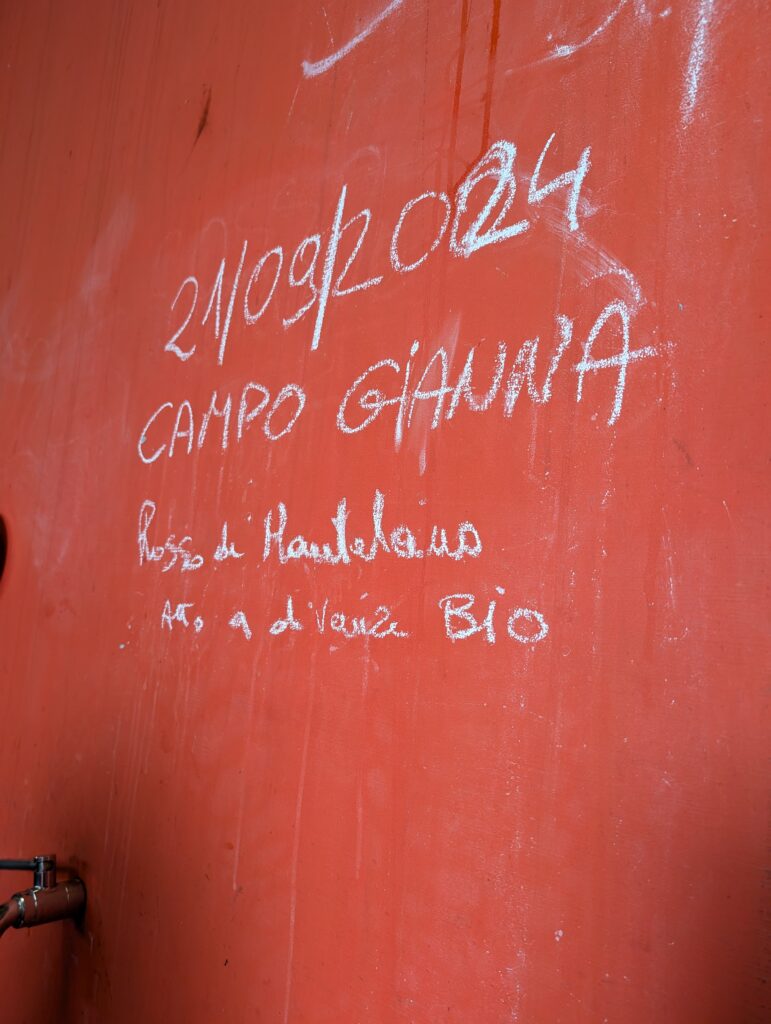 21/09/2024
CAMPO GIANNA
Rosso di Mantalano
Atto a divenire BIO